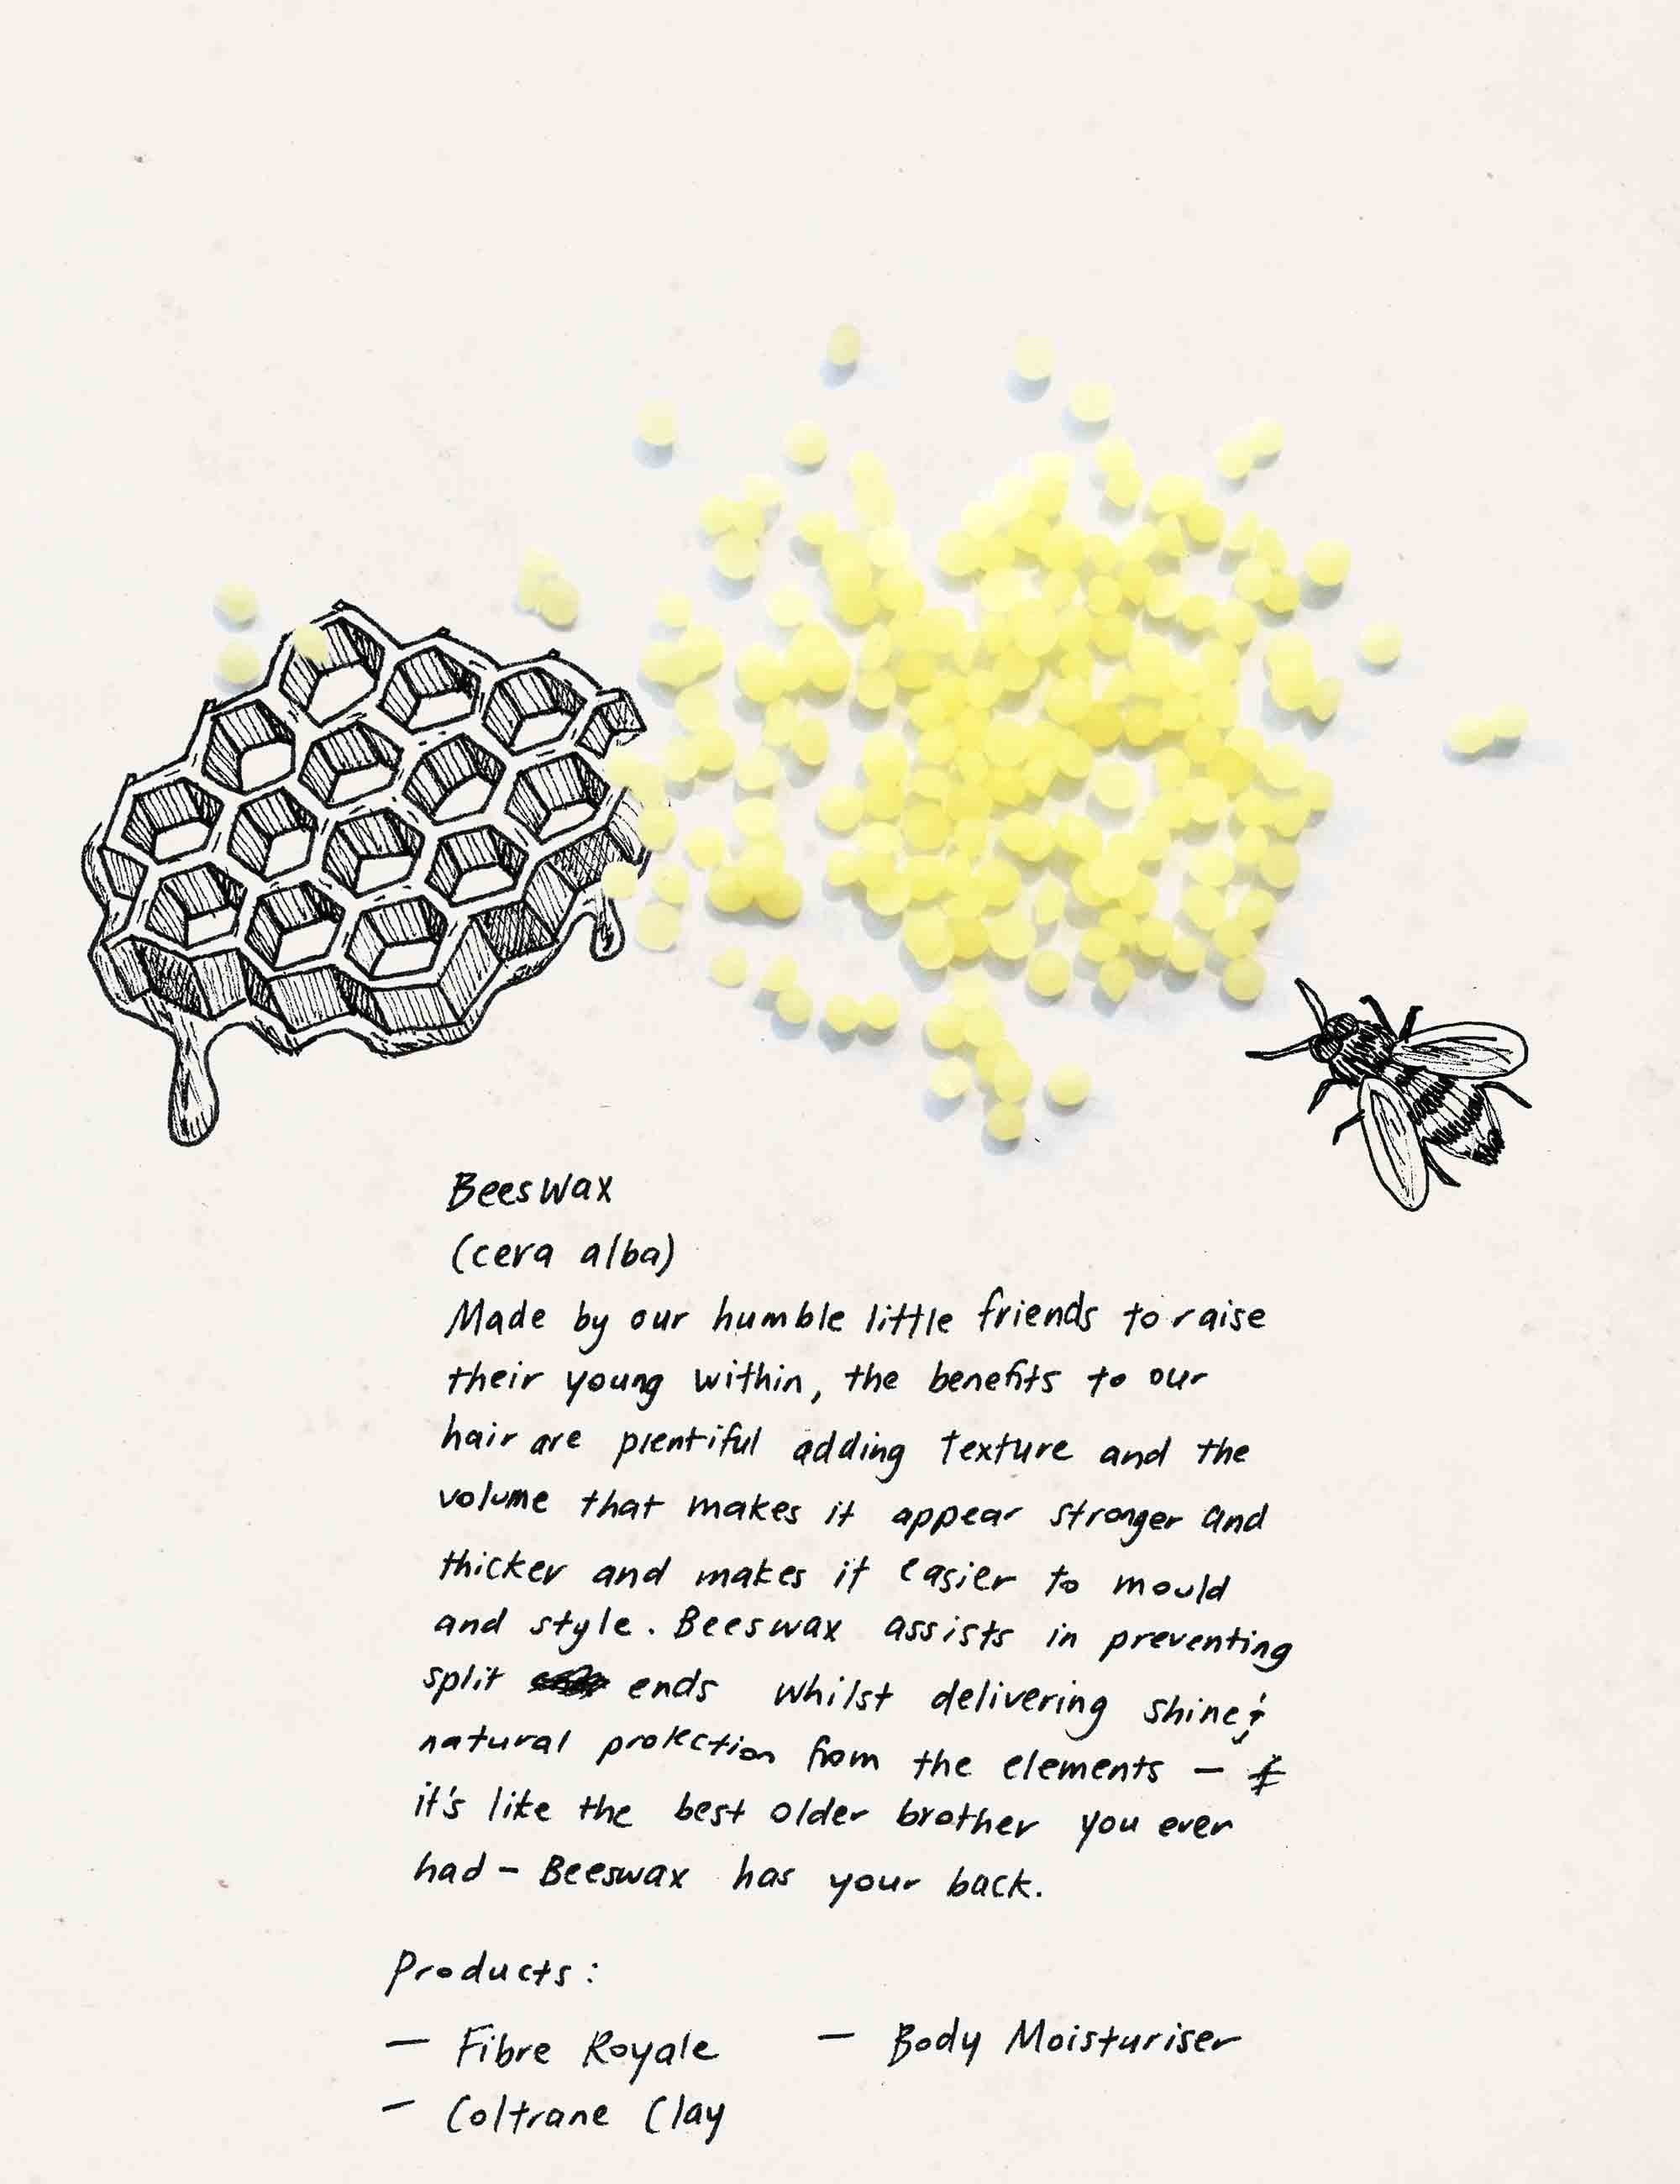 Beeswax
(cera alba)
Made by our humble little friends to raise
their young within, the benefits to our
hair are plentiful adding texture and the
volume that makes it appear stronger and
thicker and makes it easier to mould
and style. Beeswax assists in preventing
split ends whilst delivering shine &
natural protection from the elements —
it's like the best older brother you ever
had - Beeswax has your back.
Products:
— Fibre Royale — Body Moisturiser
- Coltrane Clay